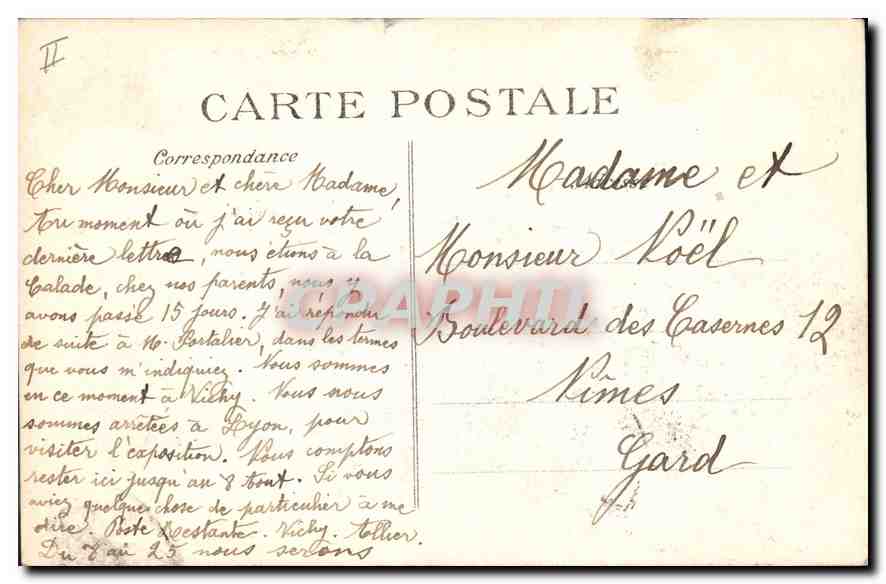 II
CARTE POSTALE
Correspondance
Cher Monsieur et chère Madame,
Au moment où j'ai reçu votre
dernière lettre, nous étions à la
Calade, chez nos parents, nous y
avons passé 15 jours. J'ai répondu
de suite à M. Portalier, dans les termes
que vous m'indiquiez. Nous sommes
en ce moment à Vichy. Nous nous
sommes arrêtées à Lyon, pour
visiter l'exposition. Nous comptons
rester ici jusqu'au 8 Aout. Si vous
aviez quelque chose de particulier à me
dire. Poste Restante. Vichy. Allier.
Du 8 au 25 nous serons
Madame et
Monsieur Noël
Boulevard des Casernes 12
Nîmes
Gard
CPAPHIL